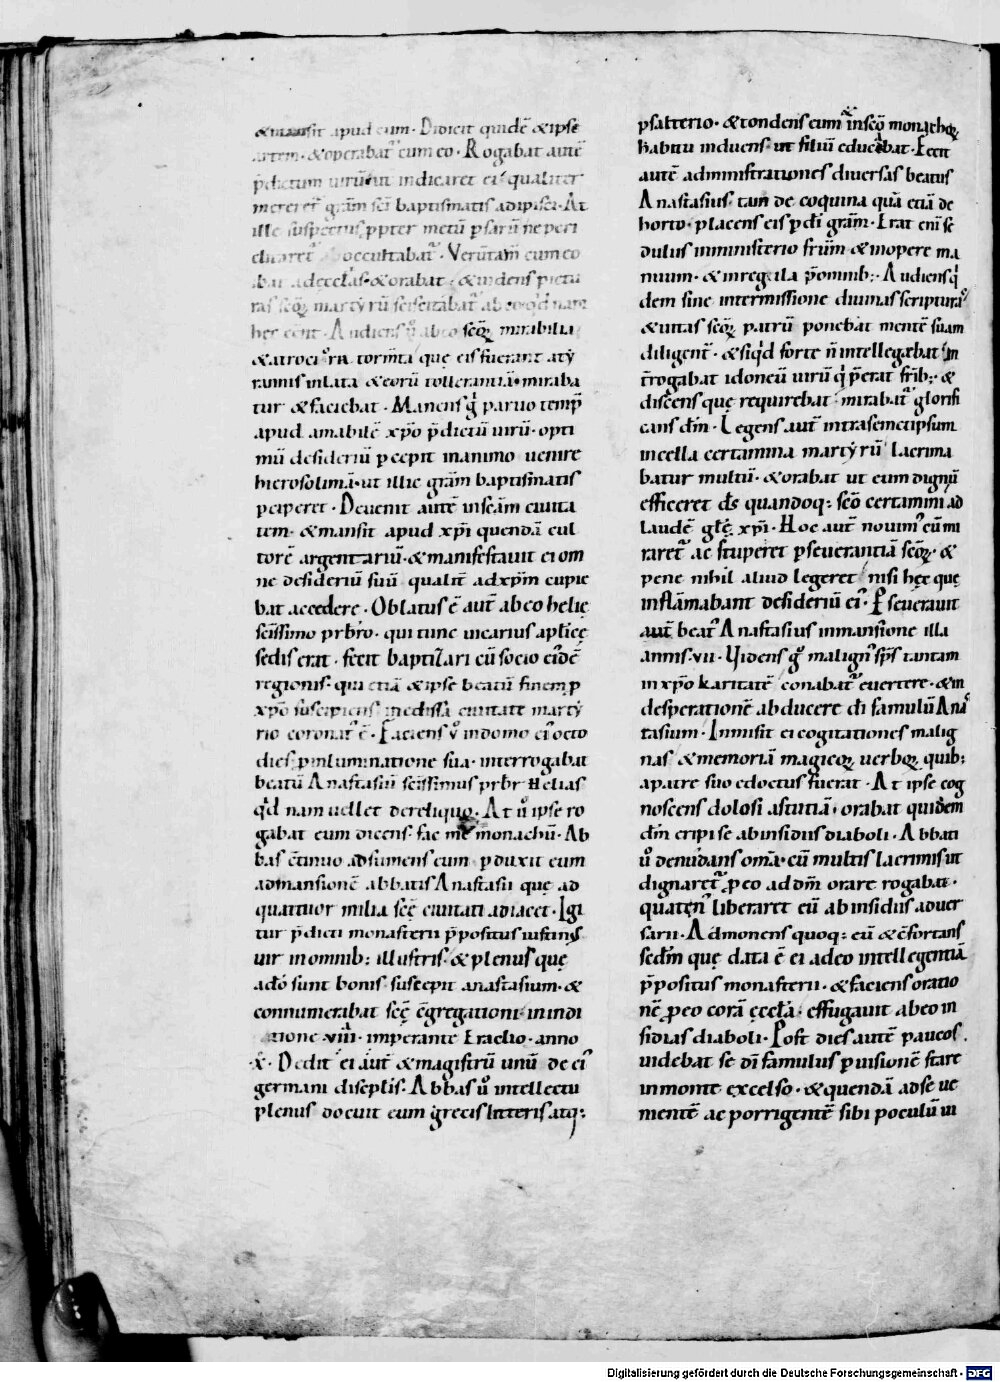 &mansit apud eum · Didicit quidē &ipse
artem · &operabatᷣ cum eo · Rogabat autē
p̄dictum uirū ut indicaret ei qualiter
mereretᷣ grām sc̄i baptismatis adipisci · At
ille suspectus ꝓpter metū ꝑsarū ne peri
clitaretᷣ occultabatᷣ · Verūtam̄ cum eo
ibat ad eccl̄as · &orabat · &uidens pictu
ras sc̄oꝝ martyrū sciscitabatᷣ ab eo qͥd nam
hec eēnt · Audiens ū ab eo sc̄oꝝ mirabilia
&atrociora torm̄ta quę eis fuerant a ty
rannis inlata &eorū tollerantiā · miraba
tur &faciebat · Manens gͥ paruo temp̄
apud amabilē xp̄o p̄dictū uirū · opti
mū desideriū ꝑcepit in animo uenire
hierosolimā · ut illic grām baptismatis
ꝑciperet · Deuenit autē in sc̄am ciuita
tem · &mansit apud xp̄i quendā cul
torē argentariū · &manifestauit ei om
ne desideriū suū qualit̄ ad xp̄m cupie
bat accedere · Oblatus ē aut̄ ab eo helię
sc̄issimo prb̄ro · qui tunc uicarius apl̄icę
sedis erat · fecit baptizari cū socio eiᷤdē
regionis · qui etiā &ipse beatū finem ꝑ
xp̄o suscipiens in edissa ciuitate marty
rio coronatᷣ ē · Faciens ū in domo eiᷤ octo
dies ꝓ inluminatione sua · interrogabat
beatū Anastasiū sc̄issimus prb̄r Helias
qͥd nam uellet de reliquo · At ū ipse ro
gabat eum dicens · fac me monachū · Ab
bas c̄tinuo adsumens eum ꝑduxit eum
ad mansionē abbatis Anastasii quę ad
quattuor milia sc̄ę ciuitati adiacet · Igi
tur p̄dicti monasterii p̄positus iustinᷤ
uir in omnibꝫ illustris · &plenus quę
ad dō sunt bonis · suscepit anastasium · &
connumerabat sc̄ę c̄gregationi · in indi
tione ·viii· imperante Eraclio · anno
·x· Dedit ei aut̄ &magistrū unū de eiᷤ
germani discipl̄is · Abbas ū intellectu
plenus docuit eum grecis litteris atqꝫ
psalterio · &tondens eum in sc̄o monachoꝝ
habitu induens · ut filiū educabat · Fecit
autē administrationes diuersas beatus
Anastasius · tam de coquina quā etiā de
horto · placens eis ꝑ dī grām · Erat enī se
dulus in ministerio frūm &in opere ma
nuum · &in regula p̄ omnibꝫ · Audiens qͥ
dem sine intermissione diuinas scripturaᷤ
&uitas sc̄oꝝ patrū ponebat mentē suam
diligent̄ · &si qͥd forte n̄ intellegebat in
t̄rogabat idoneū uirū qͥ p̄erat fr̄ibꝫ · &
discens quę requirebat mirabatᷣ glorifi
cans dm̄ · Legens aut̄ intra semetipsum
in cella certamina martyrū lacrima
batur multū · &orabat ut eum dignū
efficeret ds̄ quandoqꝫ sc̄o certamini ad
laudē gl̄ę xp̄i · Hoc aut̄ nouimᷤ eū mi
raretᷣ ac stuperet ꝑseuerantiā sc̄oꝝ · &
pene nihil aliud legeret nisi hęc quę
inflāmabant desideriū eiᷤ · Perseuerauit
aut̄ beatᷤ Anastasius in mansione illa
annis ·vii· Videns gͦ malignᷤ sp̄s tantam
in xp̄o karitatē conabatᷣ euertere · &in
desperationē abducere dī famulū Anaᷤ
tasium · Inmisit ei cogitationes malig
nas &memoriā magicoꝝ uerboꝝ quibꝫ
a patre suo edoctus fuerat · At ipse cog
noscens dolosi astutiā · orabat quidem
dm̄ eripi se ab insidiis diaboli · Abbati
ū denudans omā · cū multis lacrimis ut
dignaretᷣ ꝓ eo ad dm̄ orare rogabat ·
quatenᷤ liberaret eū ab insidiis aduer
sarii · Admonens quoqꝫ eū &c̄fortans
sed̄m quę data ē ei a deo intellegentiā
p̄positus monasterii · &faciens oratio
nē ꝓ eo corā eccl̄a · effugauit ab eo in
sidias diaboli · Post dies autē paucos ·
uidebat se dī famulus ꝑ uisionē stare
in monte excelso · &quendā ad se ue
nientē ac porrigentē sibi poculū in
Digitalisierung gefördert durch die Deutsche Forschungsgemeinschaft - DFG